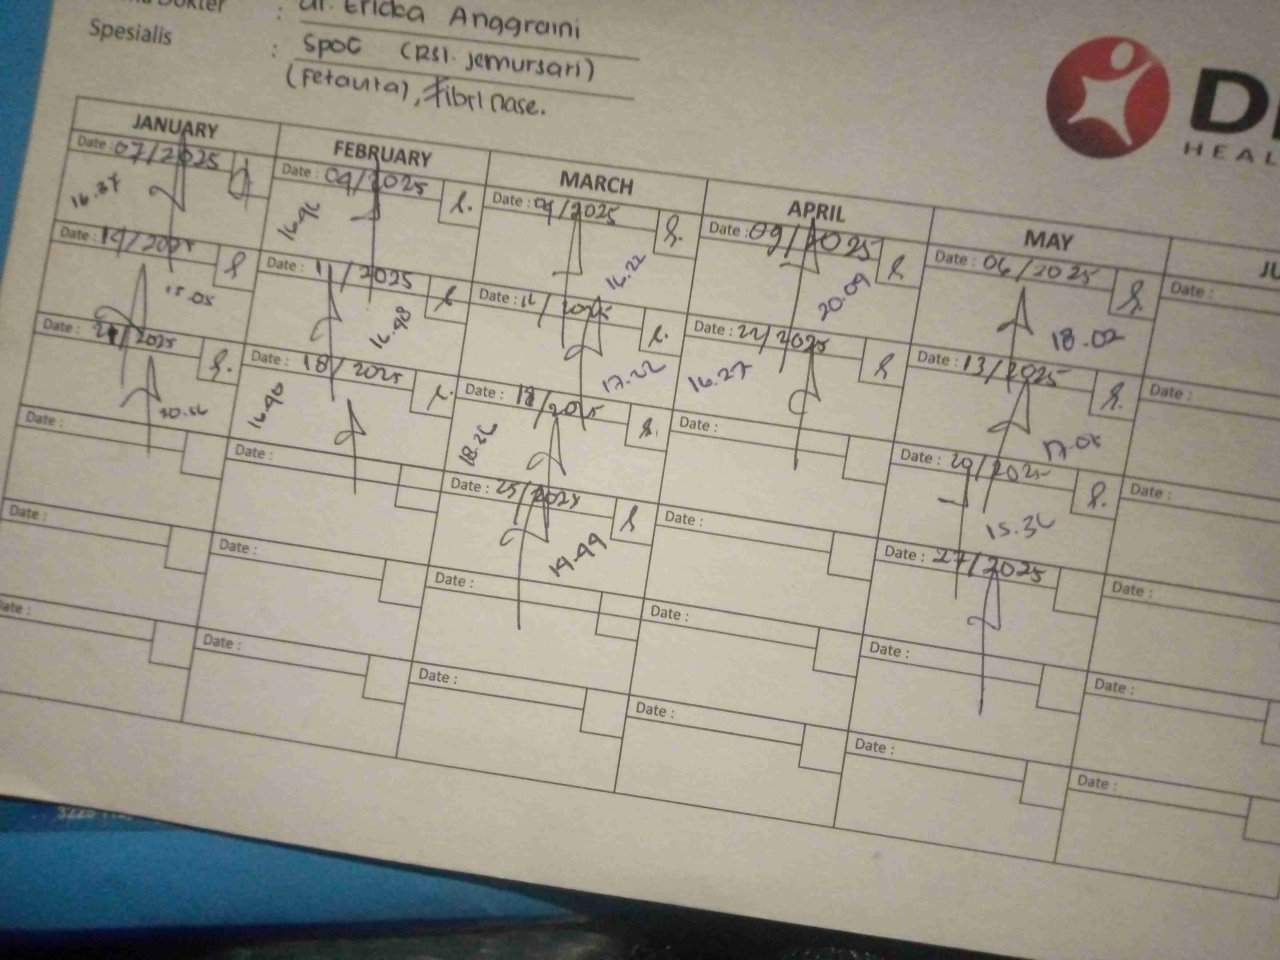 Dokter : dr. Ericka Anggraini
Spesialis : SPOG (RSI. Jemursari)
(Fetavita), Fibrinase.
HEAL
JANUARY FEBRUARY MARCH APRIL MAY JU
Date : 07/2025 Date : 04/2025 Date : 04/2025 Date : 09/2025 Date : 06/2025 Date :
16.37 16.46 16.22 20.09 18.02
Date : 14/2025 Date : 11/2025 Date : 11/2025 Date : 22/2025 Date : 13/2025 Date :
15.05 16.48 17.22 16.27 17.05
Date : 21/2025 Date : 18/2025 Date : 18/2025 Date : Date : 20/2025 Date :
16.40 18.26 15.36
Date : Date : Date : 25/2025 Date : Date : 27/2025 Date :
19.49
Date : Date : Date : Date : Date : Date :
Date : Date : Date : Date : Date : Date :